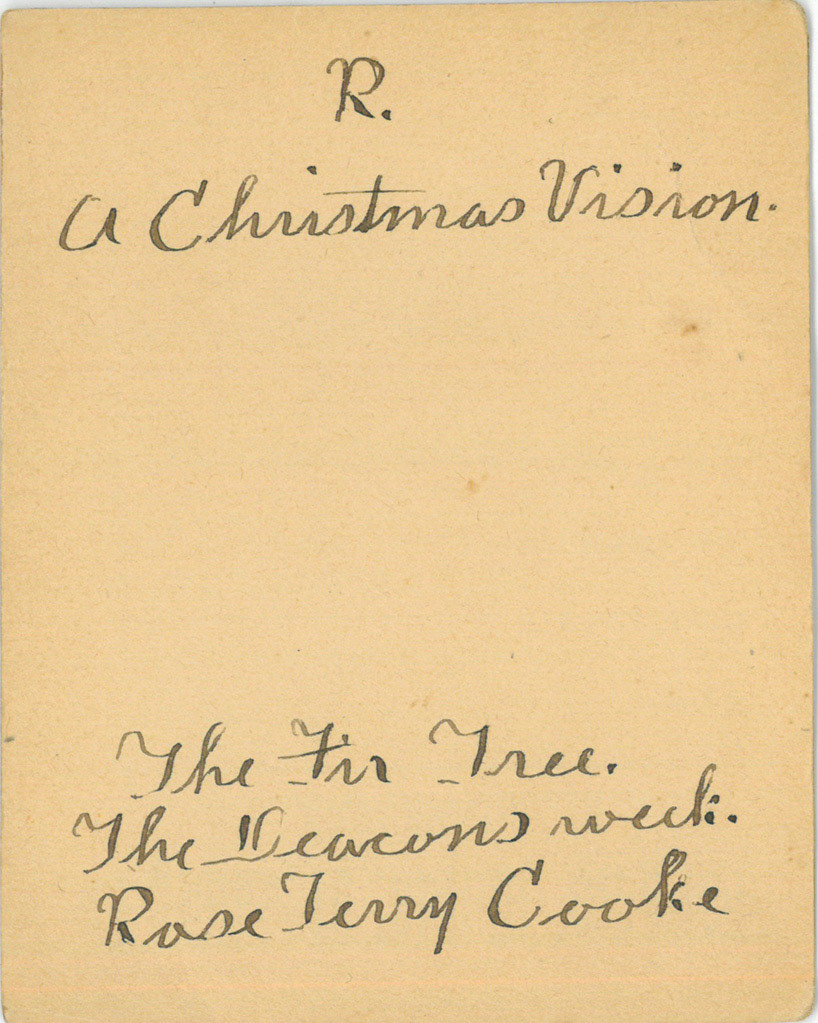 R.
A Christmas Vision.
The Fir Tree.
The Deacons week.
Rose Terry Cooke